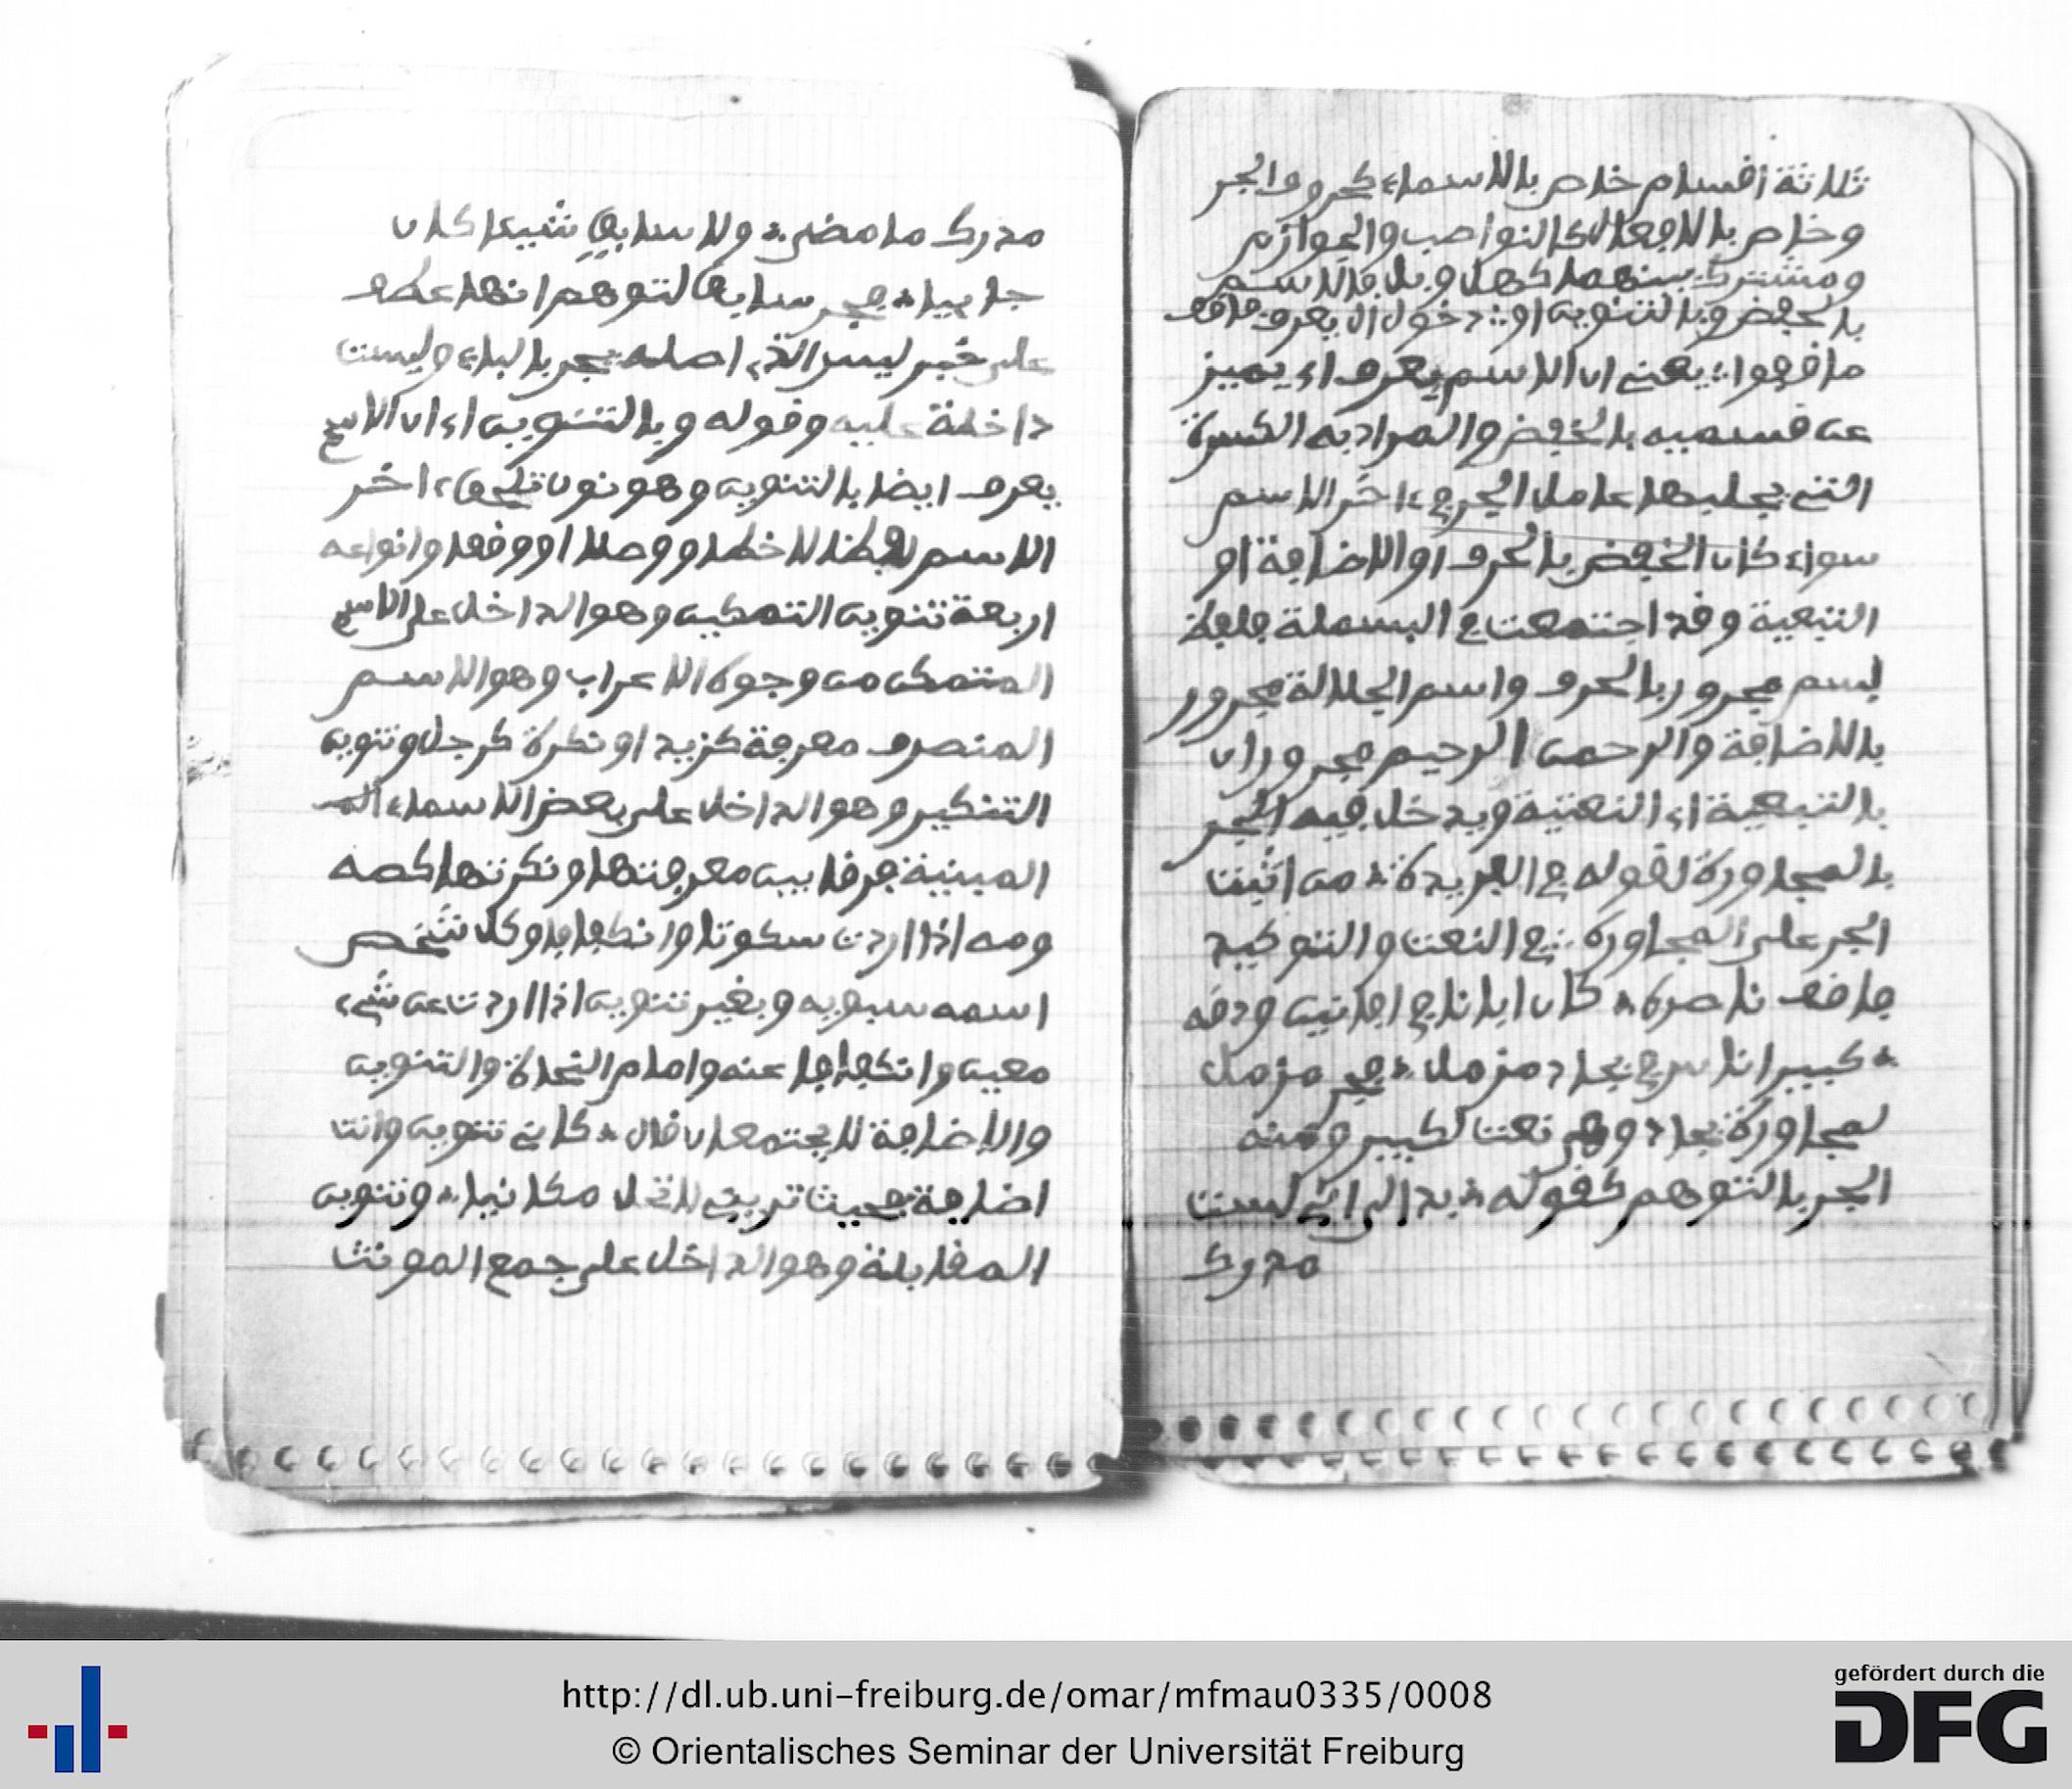 ثلاثة أقسام خاص بالاسماء كحروف الجر
وخاص بالافعال كالنواصب والجوازم
ومشترك بينهما كهل وبل فالاسم
بالخفض وبالتنوين او دخول ال يعرف فاقف
ما قفوا يعني ان الاسم يعرف اي يميز
عن قسميه بالخفض والمراد به الكسرة
التي يجلبها عامل الجر في ءاخر الاسم
سواء كان الخفض بالحرف او الاضافة او
التبعية وقد اجتمعت في البسملة
بسم مجرور بالحرف واسم الجلالة مجرور
بالاضافة والرحمن الرحيم مجروران
بالتبعية اي النعتية ويدخل فيه الجر
بالمجاورة لقوله في الفريدة من اثبت
الجر على المجاورة في النعت والتوكيد
فاقف ناصره كان ابانا في افانين ودقه
كبير اناس في بجاد مزمل جر مزمل
لمجاورة بجاد وهي نعت لكبير ومنه
الجر بالتوهم كقوله بدا لي اني لست
مدرك
مدرك ما مضى ولا سابق شيئا كان
جاييا بجر سابق لتوهم انها عطف
على خبر ليس الذي اصله يجر بالباء وليست
داخلة عليه وقوله وبالتنوين اي ان الاسم
يعرف ايضا بالتنوين وهو نون تلحق ءاخر
الاسم لفظا لا خطا ووصلا او وقفا وانواعه
اربعة تنوين التمكين وهو الداخل على الاسم
المتمكن من وجوه الاعراب وهو الاسم
المنصرف معرفة كزيد او نكرة كرجل وتنوين
التنكير وهو الداخل على بعض الاسماء
المبنية فرقا بين معرفتها ونكرتها كصه
ومه اذا اردت سكوتا وانكفافا وكل شخص
اسمه سبويه وبغير تنوين اذا اردت عن شيء
معين وانكفافا عنه وامام النحاة والتنوين
والاضافة لا يجتمعان قال كاني تنوين وانت
اضافة فحيث تريني لا تحل مكانيا وتنوين
المقابلة وهو الداخل على جمع المونث
http://dl.ub.uni-freiburg.de/omar/mfmau0335/0008
© Orientalisches Seminar der Universität Freiburg
gefördert durch die
DFG